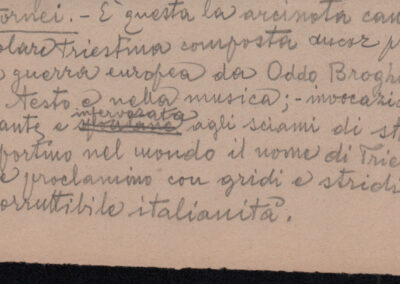 Tornei. - È questa la arcinota can
olare Triestina composta ancor p
a guerra europea da Oddo Brogh
testo e nella musica; - invocazio
infervorata
ante e agli sciami di st
portino nel mondo il nome di Trie
e proclamino con gridi e stridi
orruttibile italianità.